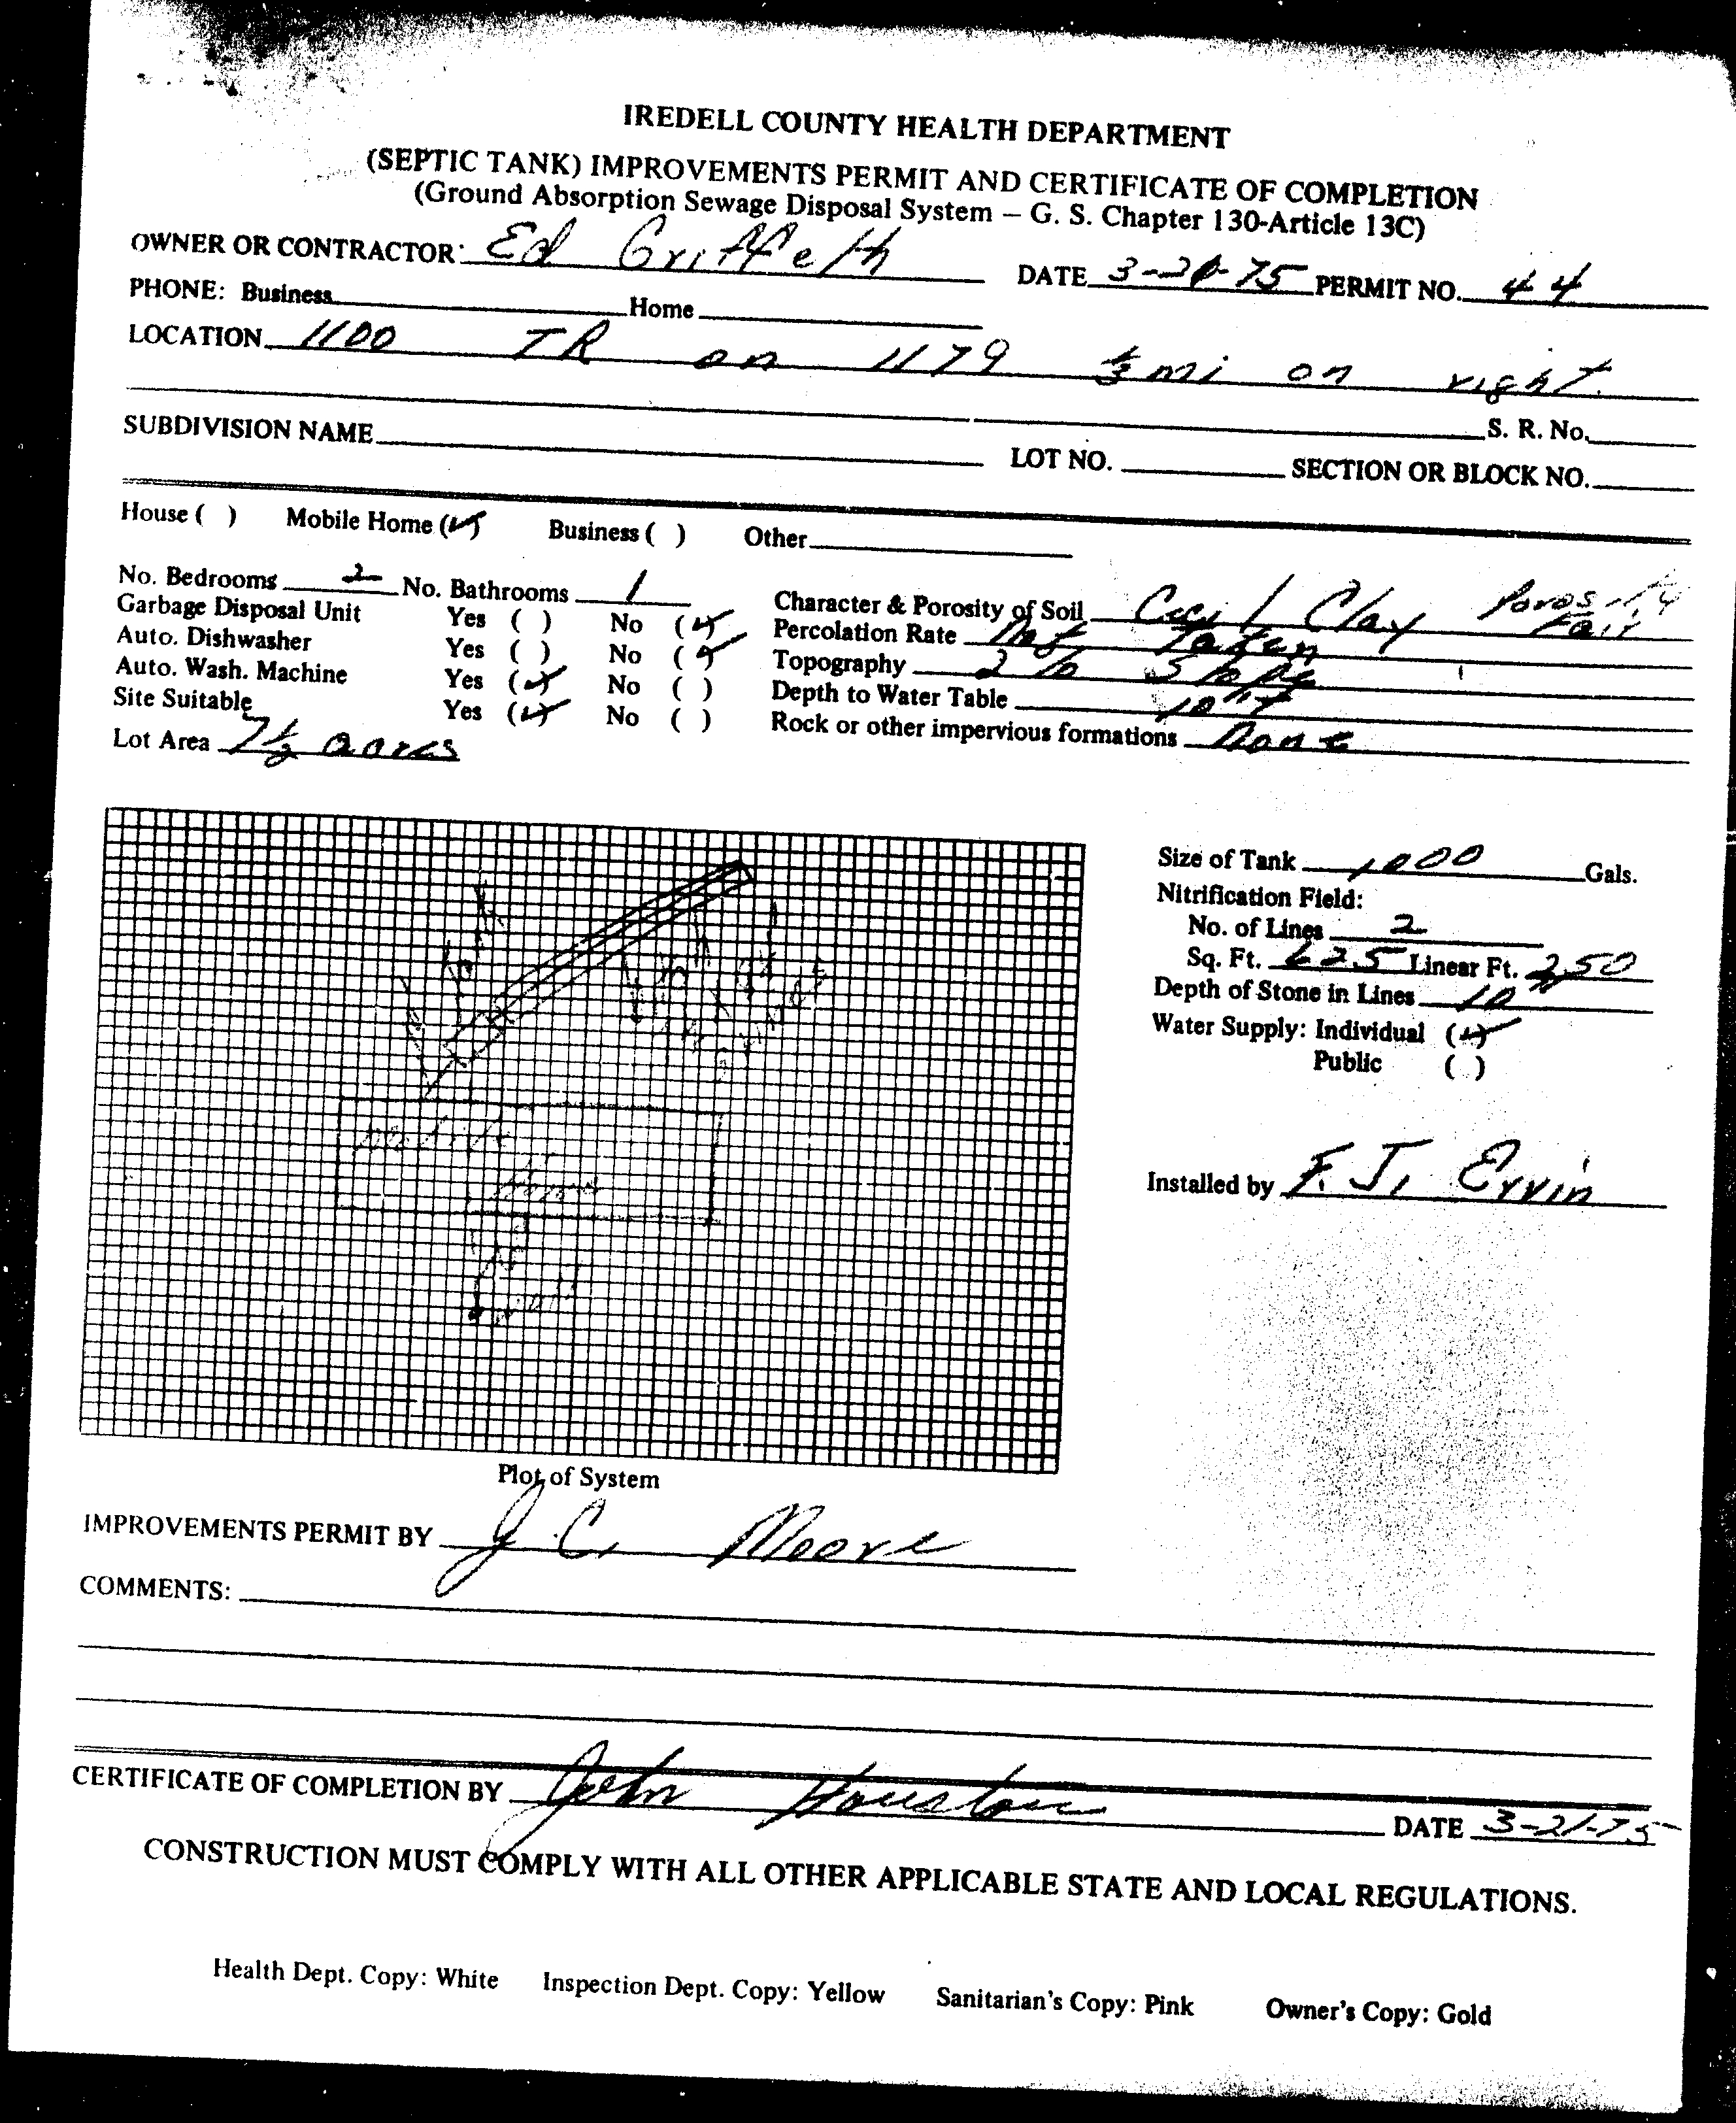 IREDELL COUNTY HEALTH DEPARTMENT
(SEPTIC TANK) IMPROVEMENTS PERMIT AND CERTIFICATE OF COMPLETION
(Ground Absorption Sewage Disposal System – G. S. Chapter 130-Article 13C)
OWNER OR CONTRACTOR: Ed Griffeth DATE 3-20-75 PERMIT NO. 44
PHONE: Business Home
LOCATION 1100 TR on 1179 1/3 mi on right.
S. R. No.
SUBDIVISION NAME LOT NO. SECTION OR BLOCK NO.
House ( ) Mobile Home (✓) Business ( ) Other
No. Bedrooms 2 No. Bathrooms 1
Garbage Disposal Unit Yes ( ) No (✓)
Auto. Dishwasher Yes ( ) No (✓)
Auto. Wash. Machine Yes (✓) No ( )
Site Suitable Yes (✓) No ( )
Lot Area 7½ acres
Character & Porosity of Soil Cecil Clay Porosity Fair
Percolation Rate Not Taken
Topography 2 % Slope
Depth to Water Table 10 ft
Rock or other impervious formations None
Size of Tank 1000 Gals.
Nitrification Field:
No. of Lines 2
Sq. Ft. 625 Linear Ft. 250
Depth of Stone in Lines 10"
Water Supply: Individual (✓)
Public ( )
Installed by F. J. Ervin
Mobile
Home
well
Plot of System
IMPROVEMENTS PERMIT BY J. C. Moore
COMMENTS:
CERTIFICATE OF COMPLETION BY John Houston DATE 3-21-75
CONSTRUCTION MUST COMPLY WITH ALL OTHER APPLICABLE STATE AND LOCAL REGULATIONS.
Health Dept. Copy: White Inspection Dept. Copy: Yellow Sanitarian's Copy: Pink Owner's Copy: Gold